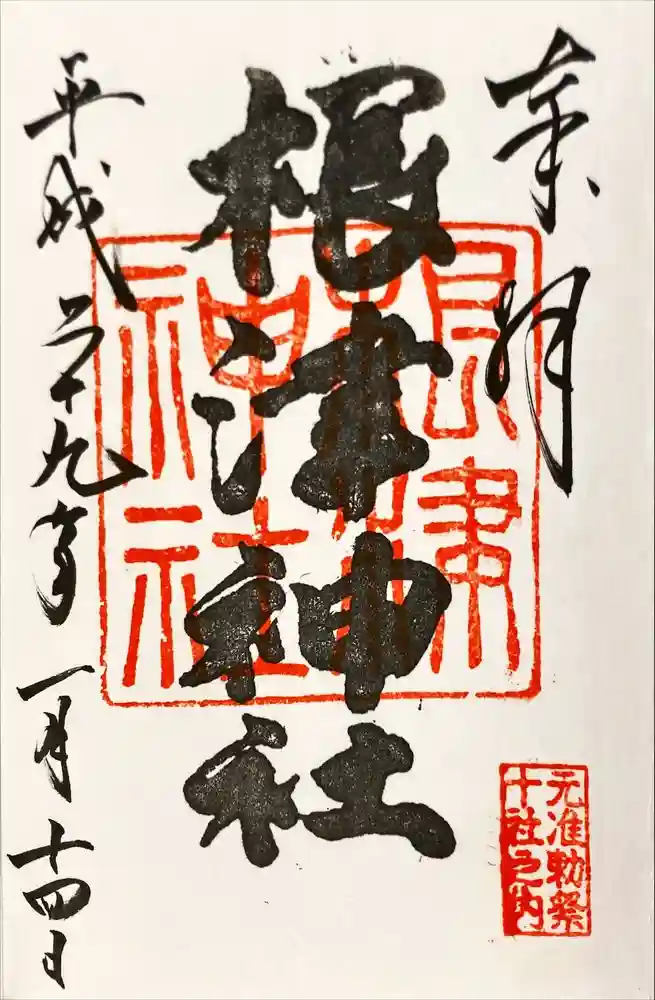 奉拝
根津神社
根津神社
元准勅祭
十社之内
平成二十九年一月十四日